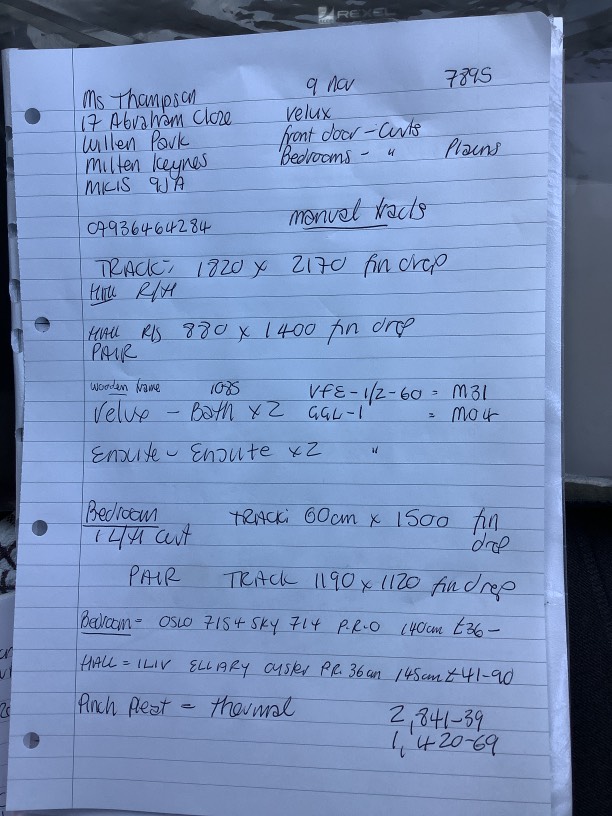 REXEL
Ms Thompson 9 Nov 7895
17 Abraham Close Velux
Willen Park front door - Curts
Milton Keynes Bedrooms - " Plains
MK15 9JA
07936464284 manual tracks
TRACK: 1820 x 2170 fin drop
Hall R/H
HALL R/S 880 x 1400 fin drop
PAIR
wooden frame 1085 VFE-1/2-60 = M31
Velux - Bath x2 GGL-1 = M04
Ensuite - Ensuite x2 "
Bedroom TRACK: 60cm x 1500 fin
1 L/H Curt drop
PAIR TRACK 1190 x 1120 fin drop
Bedroom = OSLO 715+ SKY 714 P.R.O 140cm £36-
HALL = ILIV ELLARY oyster P.R. 36cm 145cm £41-90
Pinch Pleat = thermal 2,841-39
1,420-69